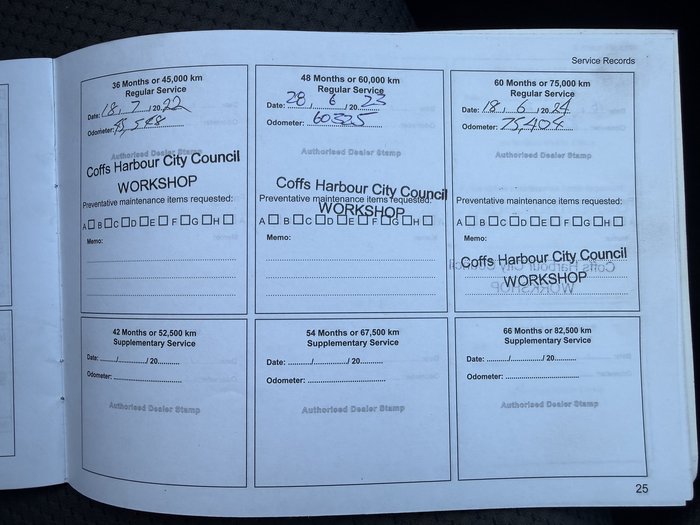 Service Records
36 Months or 45,000 km
Regular Service
Date: 18 / 7 / 20 22
Odometer: 45,548
Authorised Dealer Stamp
Coffs Harbour City Council
WORKSHOP
Preventative maintenance items requested:
A☐ B☐ C☐ D☐ E☐ F☐ G☐ H☐
Memo:
48 Months or 60,000 km
Regular Service
Date: 28 / 6 / 20 23
Odometer: 60325
Authorised Dealer Stamp
Coffs Harbour City Council
Preventative maintenance items requested:
WORKSHOP
A☐ B☐ C☐ D☐ E☐ F☐ G☐ H☐
Memo:
60 Months or 75,000 km
Regular Service
Date: 18 / 6 / 20 24
Odometer: 75,404
Authorised Dealer Stamp
Preventative maintenance items requested:
A☐ B☐ C☐ D☐ E☐ F☐ G☐ H☐
Memo:
Coffs Harbour City Council
WORKSHOP
42 Months or 52,500 km
Supplementary Service
Date: ....../....../ 20......
Odometer: ..............................
Authorised Dealer Stamp
54 Months or 67,500 km
Supplementary Service
Date: ....../....../ 20......
Odometer: ..............................
Authorised Dealer Stamp
66 Months or 82,500 km
Supplementary Service
Date: ....../....../ 20......
Odometer: ..............................
Authorised Dealer Stamp
25